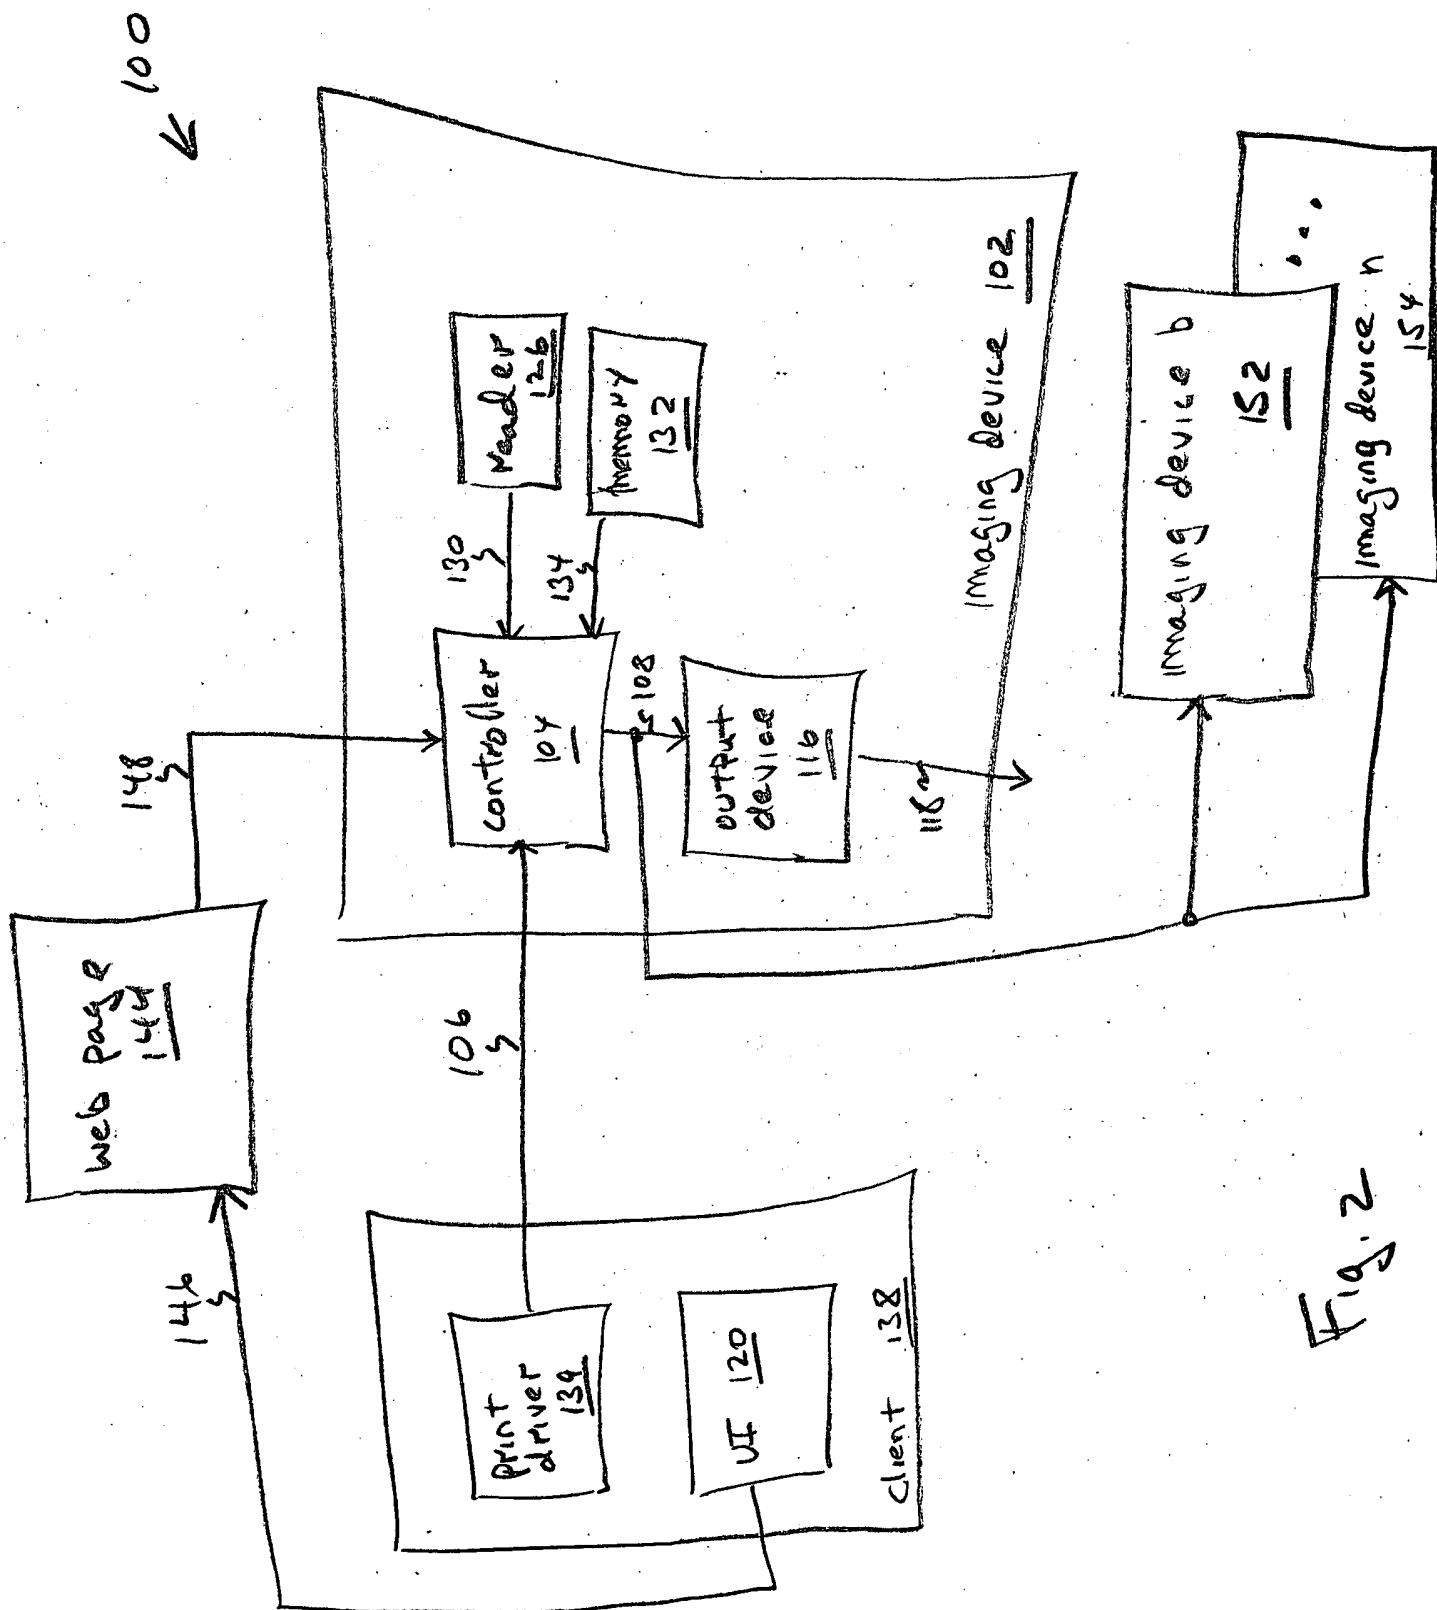 100
web page
144
146
148
print
driver
139
UI 120
Client 138
106
controller
104
reader
126
130
memory
132
134
108
output
device
116
118
Imaging device 102
Imaging device b
152
...
Imaging device n
154
Fig. 2